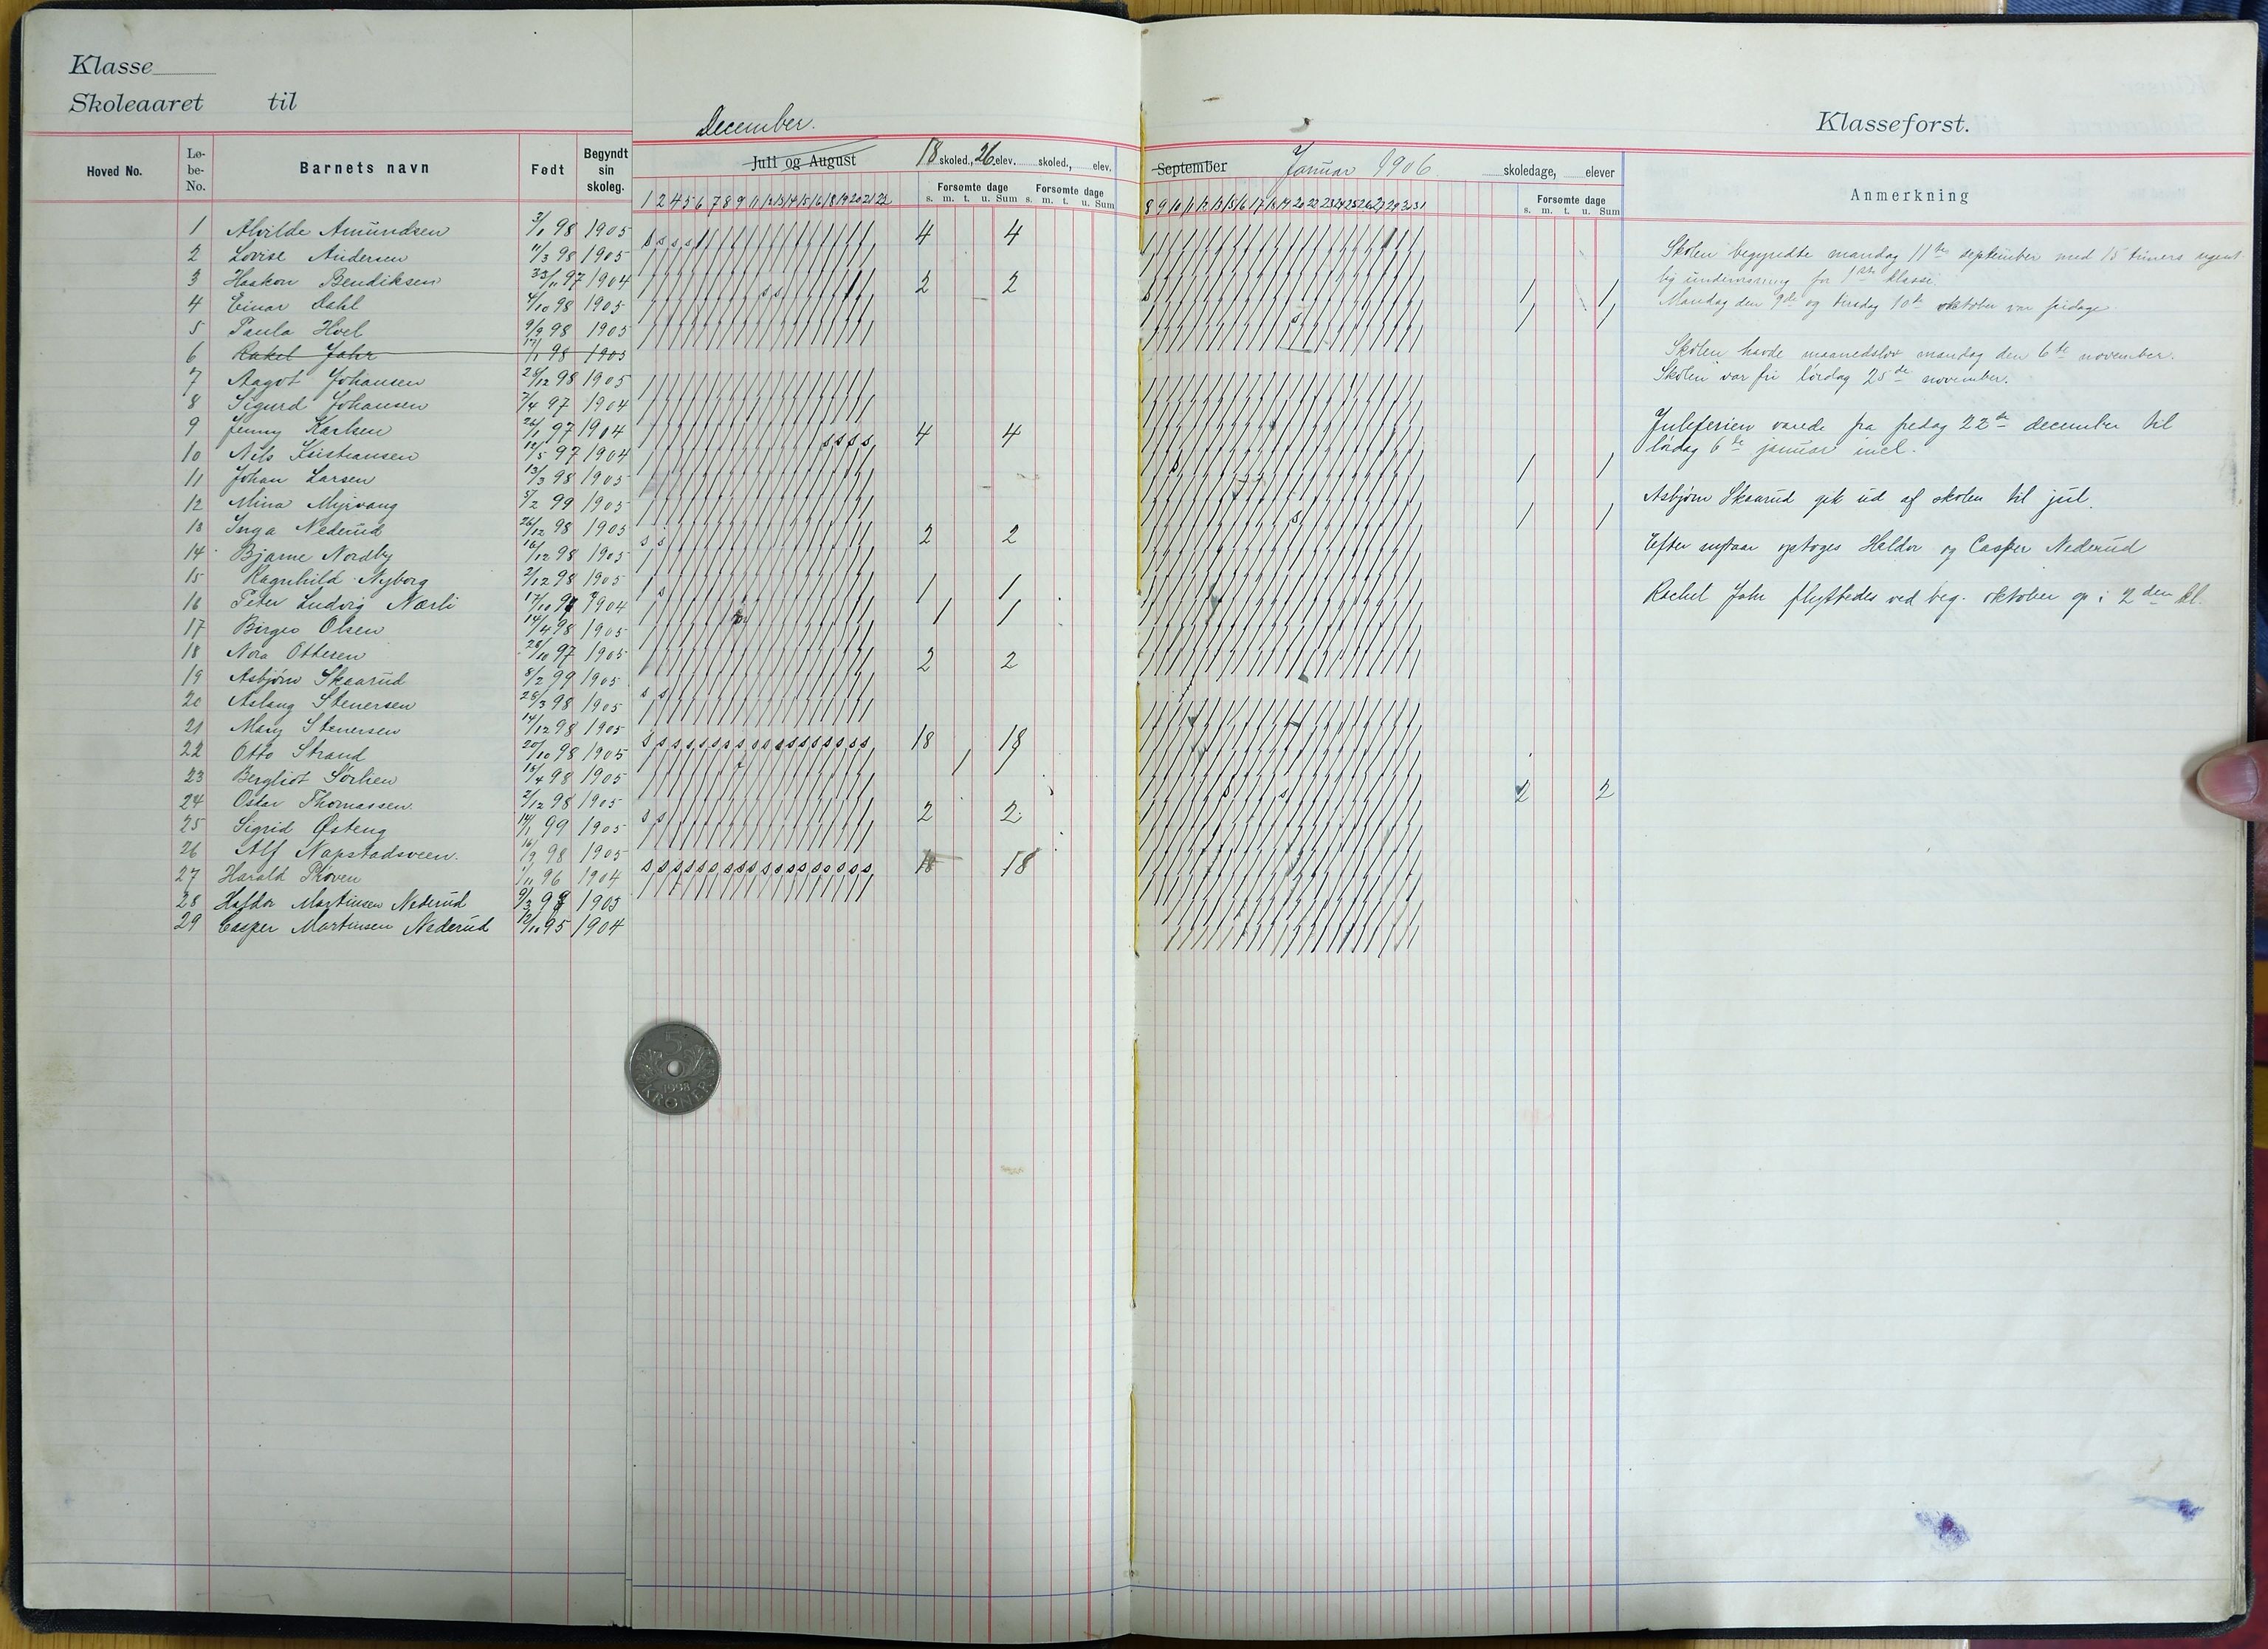 Klasse
Skoleaaret til
December.
Klasseforst.
Hoved No. Lø-be-No. Barnets navn Født Begyndt sin skoleg.
Juli og August 18 skoled., 26 elev. skoled., elev.
September Januar 1906 skoledage, elever
Anmerkning
Forsømte dage Forsømte dage
s. m. t. u. Sum s. m. t. u. Sum
Forsømte dage
s. m. t. u. Sum
1 2 4 5 6 7 8 9 11 12 13 14 15 16 18 19 20 21 22
8 9 10 11 12 13 15 16 17 18 19 20 22 23 24 25 26 27 29 30 31
1 Alvilde Amundsen 3/1 98 1905 4 4
2 Lovise Andersen 11/3 98 1905
3 Haakon Bendiksen 97 1904 2 2 1 1
4 Einar Dahl 4/10 98 1905 1 1
5 Paula Hoel 9/9 98 1905
6 Rakel Jahr 17/1 98 1905
7 Aagot Johansen 28/12 98 1905
8 Sigurd Johansen 7/4 97 1904
9 Jenny Karlsen 24/1 97 1904 4 4
10 Nils Kristiansen 12/5 97 1904 1 1
11 Johan Larsen 13/3 98 1905
12 Mina Myrvang 5/2 99 1905 1 1
13 Inga Nederud 26/12 98 1905 2 2
14 Bjarne Nordby 16/12 98 1905
15 Ragnhild Nyborg 2/12 98 1905 1 1
16 Peter Ludvig Nærli 17/10 97 1904 1 1
17 Birger Olsen 14/4 98 1905
18 Nora Ottesen 28/10 97 1905 2 2
19 Asbjørn Skaarud 8/2 99 1905
20 Aslaug Stenersen 28/3 98 1905
21 Mary Stenersen 14/12 98 1905 18 18
22 Otto Strand 20/10 98 1905 1 1
23 Bergliot Sørlien 12/4 98 1905 2 2
24 Oskar Thomassen. 2/12 98 1905 2 2
25 Sigrid Østeng 14/1 99 1905
26 Alf Napstadsveen. 16/9 98 1905 18 18
27 Harald Prøven 1/11 96 1904
28 Haldor Martinsen Nederud 9/3 98 1905
29 Casper Martinsen Nederud 12/10 95 1904
Skolen begyndte mandag 11te september med 15 timers ugent
lig undervisning for 1ste klasse.
Mandag den 9de og tirsdag 10de oktober var fridage.
Skolen havde maanedslov mandag den 6te november.
Skolen var fri lørdag 25de november.
Juleferien varede fra fredag 22de december til
lørdag 6te januar incl.
Asbjørn Skaarud gik ud af skolen til jul.
Efter nytaar optoges Haldor og Casper Nederud
Rachel Jahr flyttedes ved beg. oktober op i 2den kl.
5
1998
KRONER